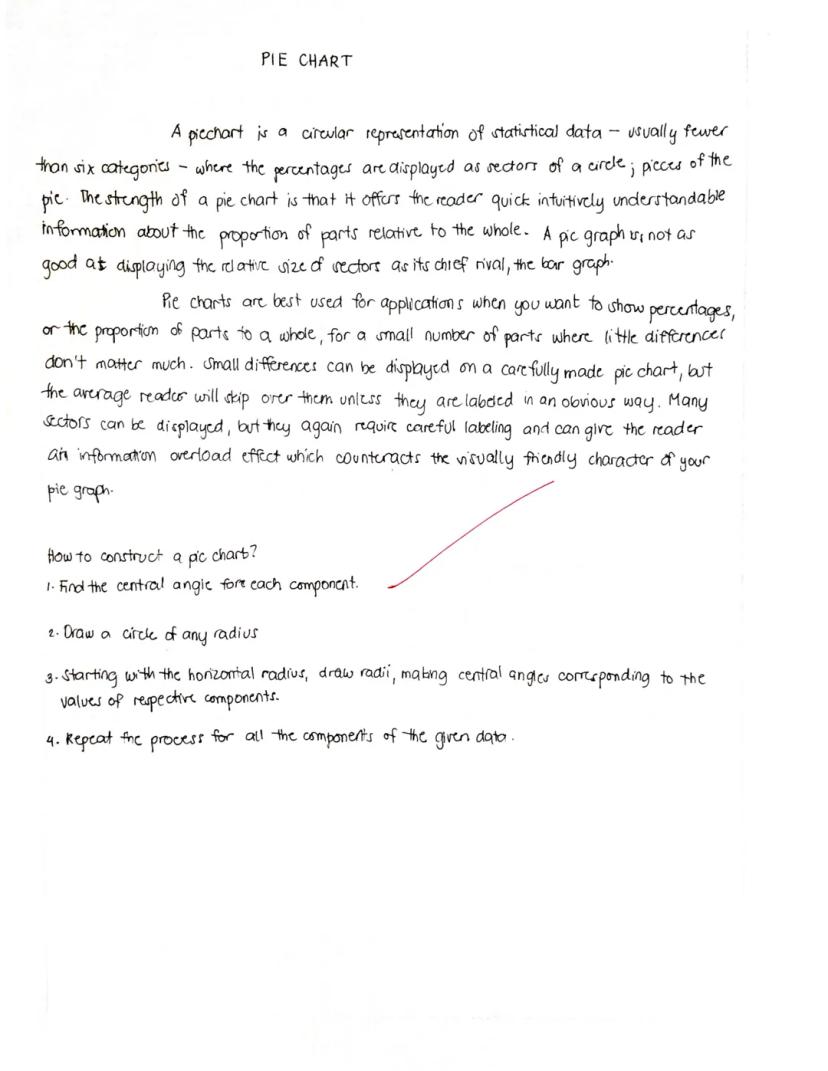 PIE CHART
A piechart is a circular representation of statistical data – usually fewer
than six categories – where the percentages are displayed as sectors of a circle; pieces of the
pie. The strength of a pie chart is that it offers the reader quick intuitively understandable
information about the proportion of parts relative to the whole. A pie graph is, not as
good at displaying the relative size of sectors as its chief rival, the bar graph.
Pie charts are best used for applications when you want to show percentages,
or the proportion of parts to a whole, for a small number of parts where little differences
don't matter much. Small differences can be displayed on a carefully made pie chart, but
the average reader will skip over them unless they are labeled in an obvious way. Many
sectors can be displayed, but they again require careful labeling and can give the reader
an information overload effect which counteracts the visually friendly character of your
pie graph.
How to construct a pie chart?
1. Find the central angle fore each component.
2. Draw a circle of any radius
3. Starting with the horizontal radius, draw radii, making central angles corresponding to the
values of respective components.
4. Repeat the process for all the components of the given data.